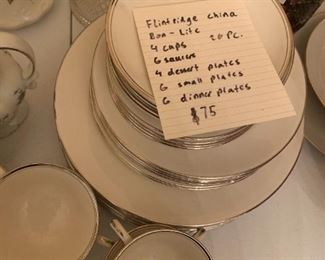 Flintridge China
Bon-Lite
4 cups 26 Pc.
6 saucers
4 dessert plates
6 small plates
6 dinner plates
$75